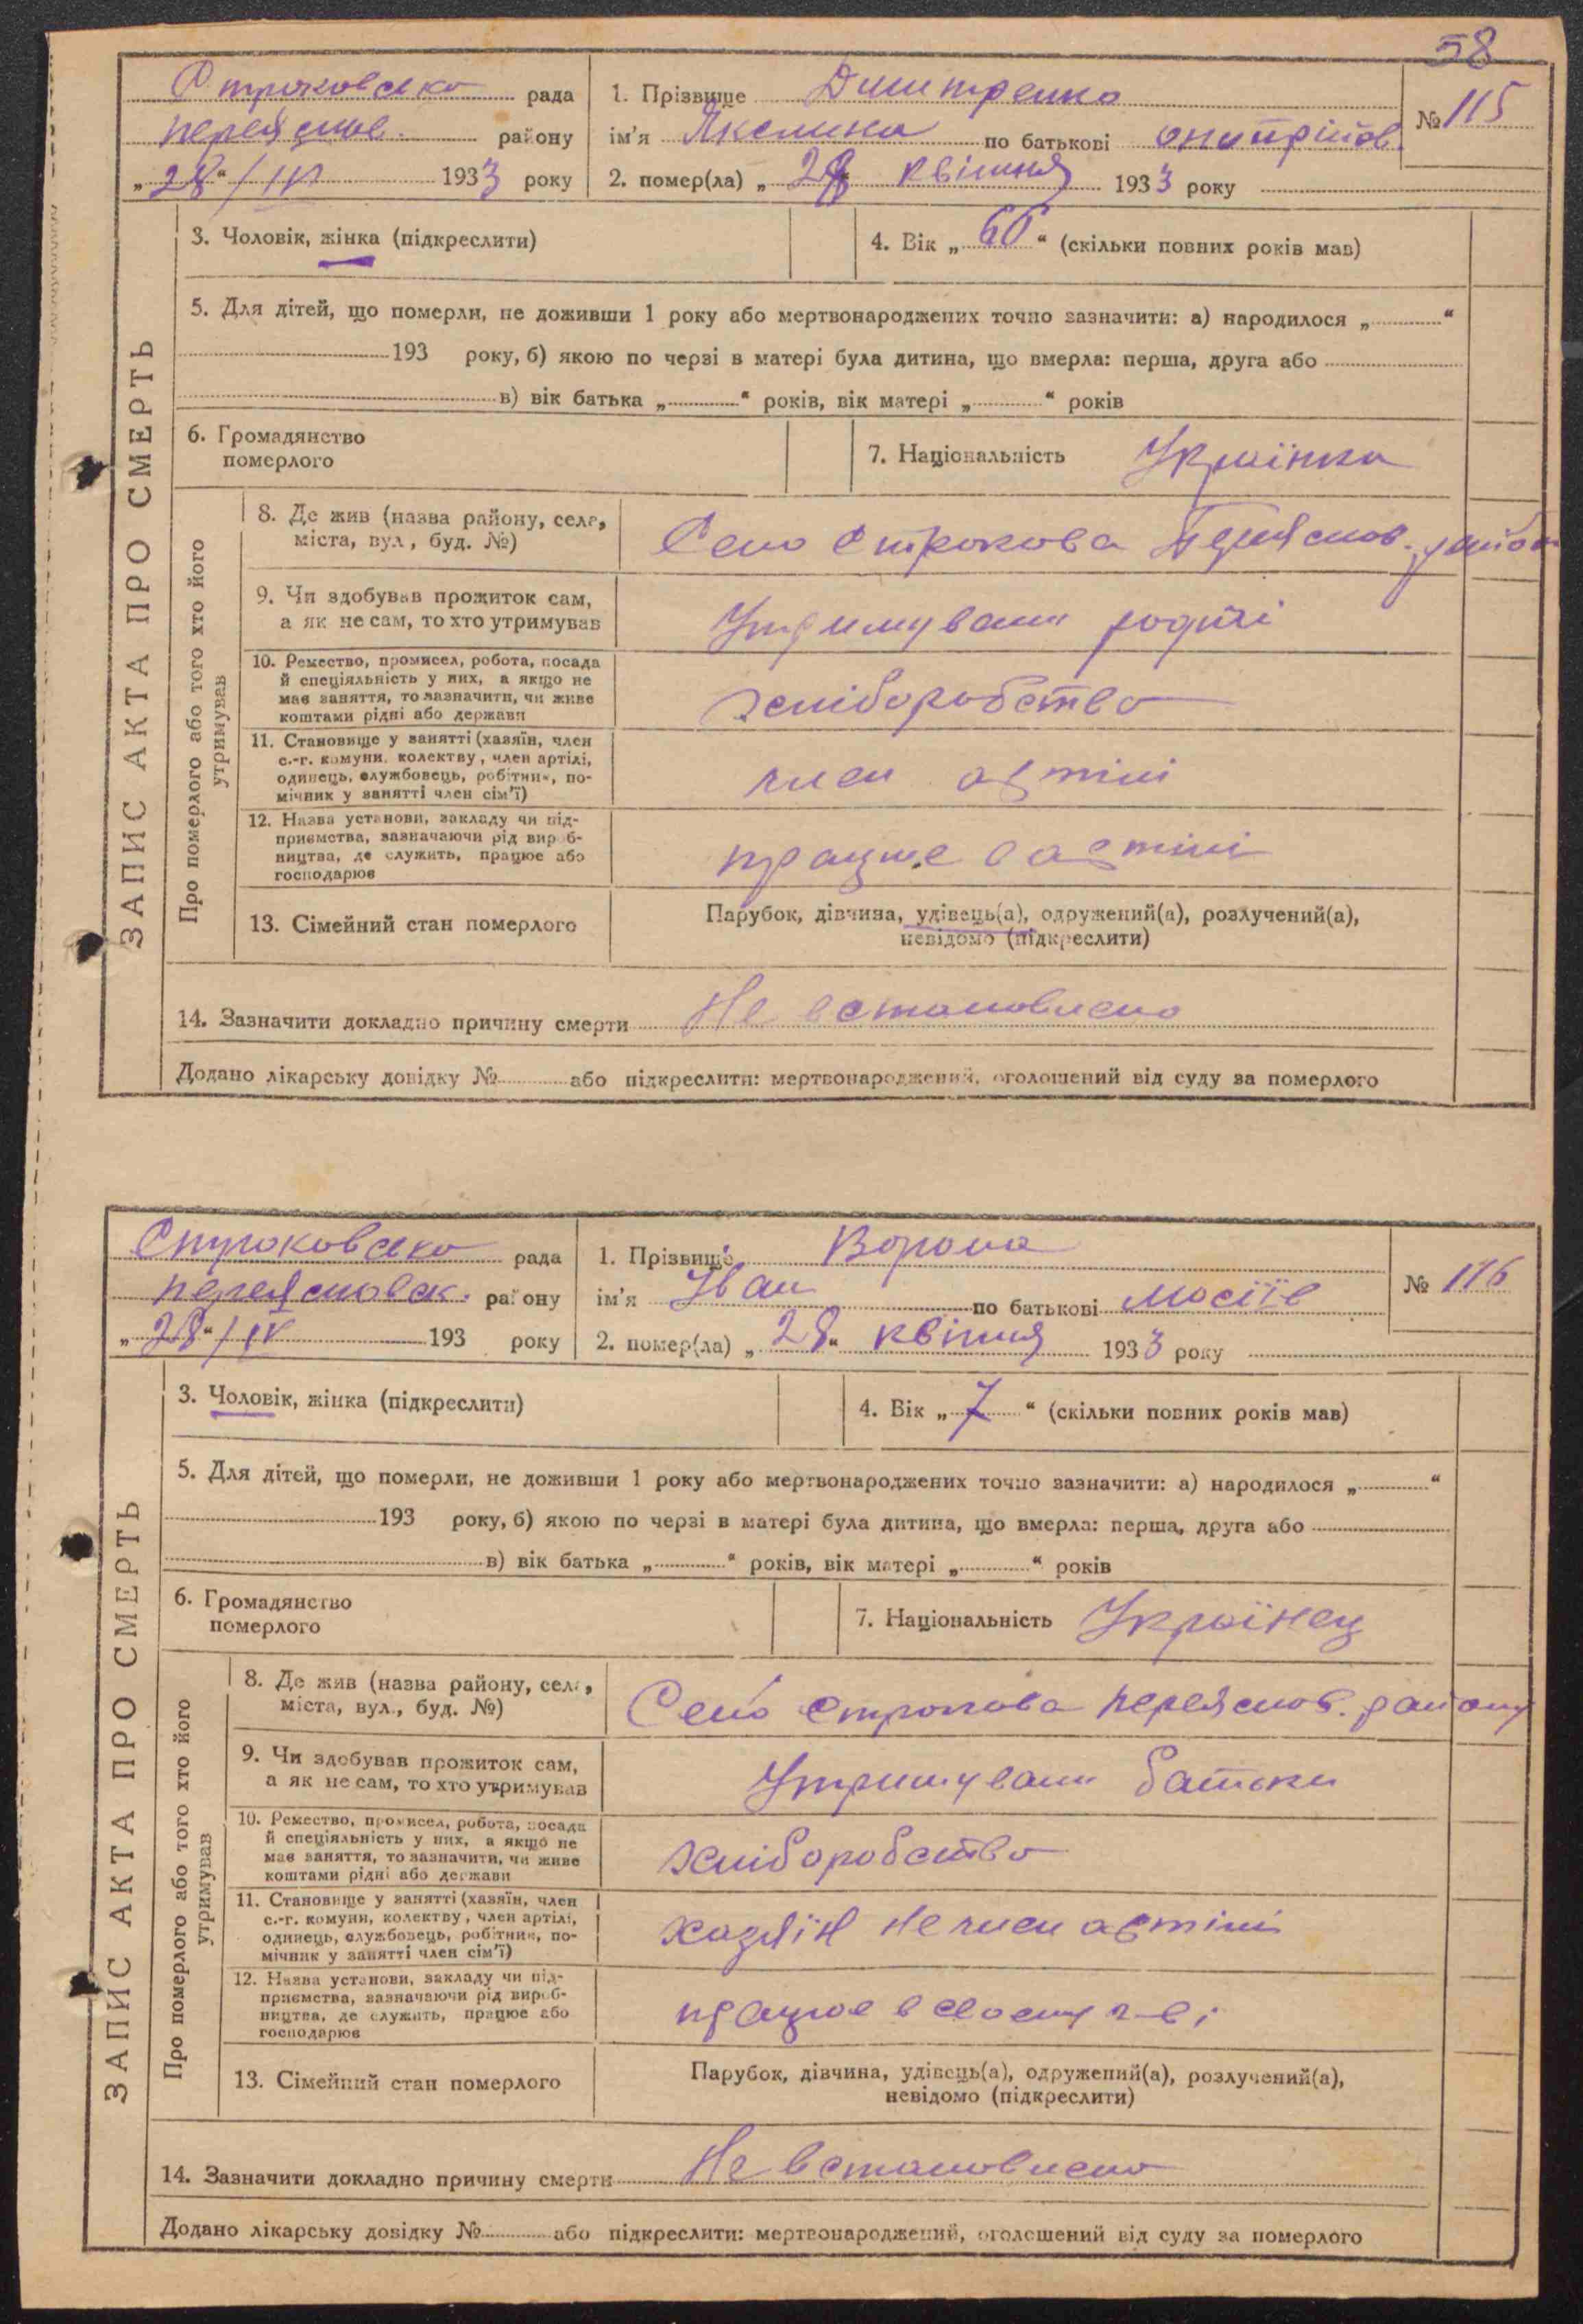 58
Строковсько рада
переяслов. району
„28“/IV 1933 року
1. Прізвище Дмитренко
ім'я Якелина по батькові Онопрійов.
2. помер(ла) „28“ квітня 1933 року
№ 115
ЗАПИС АКТА ПРО СМЕРТЬ
3. Чоловік, жінка (підкреслити)
4. Вік „60“ (скільки повних років мав)
5. Для дітей, що померли, не доживши 1 року або мертвонароджених точно зазначити: а) народилося „ “
193 року, б) якою по черзі в матері була дитина, що вмерла: перша, друга або
в) вік батька „ “ років, вік матері „ “ років
6. Громадянство
померлого
7. Національність Українка
Про померлого або того хто його
утримував
8. Де жив (назва району, села,
міста, вул., буд. №)
Село Строкова Переяслов. район
9. Чи здобував прожиток сам,
а як не сам, то хто утримував
Утримували родичі
10. Ремество, промисел, робота, посада
й спеціяльність у них, а якщо не
мав заняття, то зазначити, чи живе
коштами рідні або держави
хліборобство
11. Становище у занятті (хазяїн, член
с.-г. комуни, колективу, член артілі,
одинець, службовець, робітник, по-
мічник у занятті член сім'ї)
член артілі
12. Назва установи, закладу чи під-
приємства, зазначаючи рід вироб-
ництва, де служить, працює або
господарює
працює в артілі
13. Сімейний стан померлого
Парубок, дівчина, удівець(а), одружений(а), розлучений(а),
невідомо (підкреслити)
14. Зазначити докладно причину смерти Не встановлено
Додано лікарську довідку № або підкреслити: мертвонароджений, оголошений від суду за померлого
Строковсько рада
переясловск. району
„28“/IV 193 року
1. Прізвище Ворона
ім'я Іван по батькові Мосіїв
2. помер(ла) „28“ квітня 1933 року
№ 116
ЗАПИС АКТА ПРО СМЕРТЬ
3. Чоловік, жінка (підкреслити)
4. Вік „7“ (скільки повних років мав)
5. Для дітей, що померли, не доживши 1 року або мертвонароджених точно зазначити: а) народилося „ “
193 року, б) якою по черзі в матері була дитина, що вмерла: перша, друга або
в) вік батька „ “ років, вік матері „ “ років
6. Громадянство
померлого
7. Національність Українец
Про померлого або того хто його
утримував
8. Де жив (назва району, села,
міста, вул., буд. №)
Село Строкова Переяслов. району
9. Чи здобував прожиток сам,
а як не сам, то хто утримував
Утримували батьки
10. Ремество, промисел, робота, посада
й спеціяльність у них, а якщо не
мав заняття, то зазначити, чи живе
коштами рідні або держави
хліборобство
11. Становище у занятті (хазяїн, член
с.-г. комуни, колективу, член артілі,
одинець, службовець, робітник, по-
мічник у занятті член сім'ї)
хазяїн не член артілі
12. Назва установи, закладу чи під-
приємства, зазначаючи рід вироб-
ництва, де служить, працює або
господарює
працює в своєму г-ві
13. Сімейний стан померлого
Парубок, дівчина, удівець(а), одружений(а), розлучений(а),
невідомо (підкреслити)
14. Зазначити докладно причину смерти Не встановлено
Додано лікарську довідку № або підкреслити: мертвонароджений, оголошений від суду за померлого